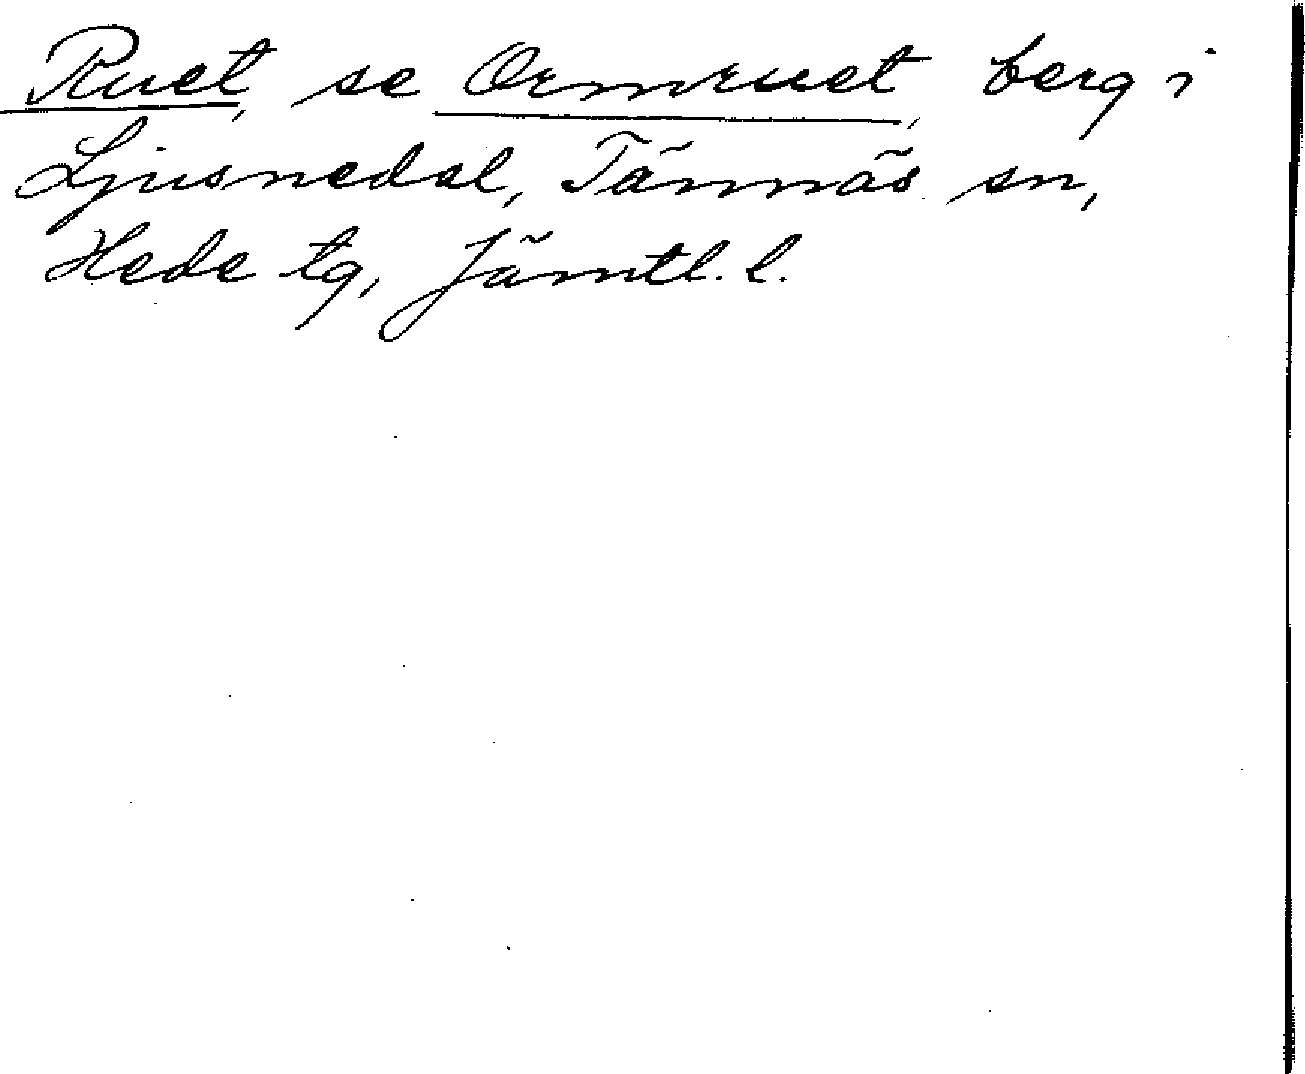 Ruet, se Ormruet, berg i
Ljusnedal, Tännäs sn,
Hede tg, Jämtl. l.